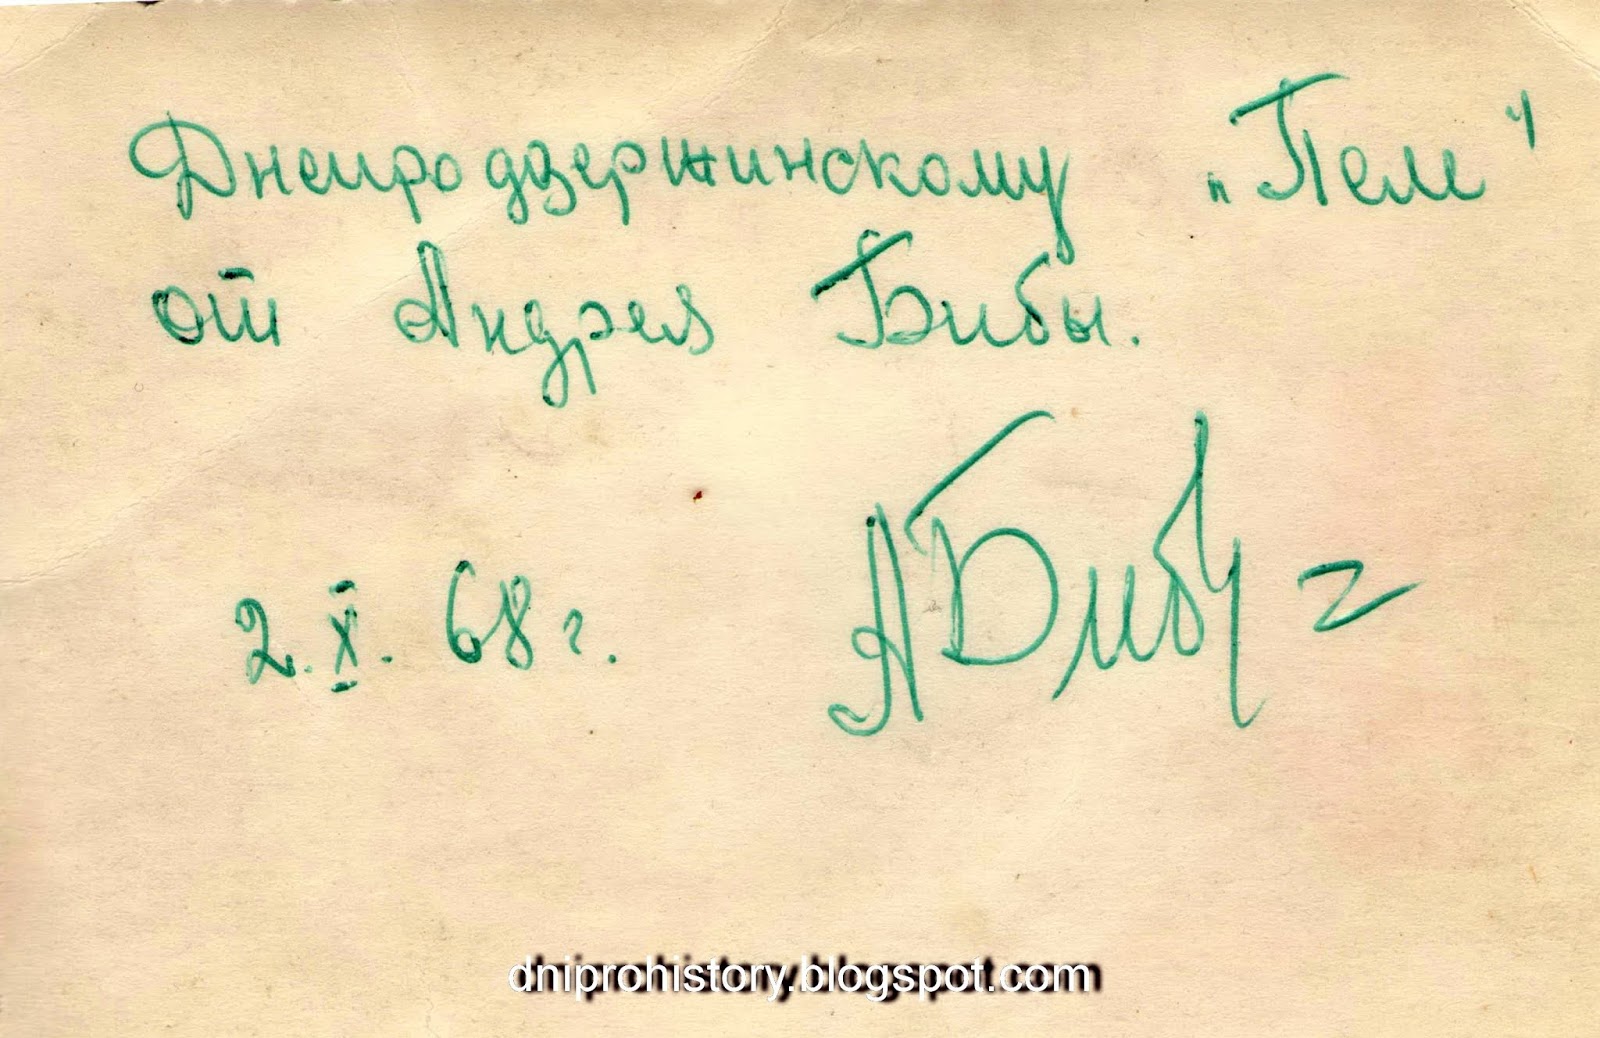 Днепродзержинскому „Пеле"
от Андрея Бибы.
2.X.68 г.
АБиба
dniprohistory.blogspot.com